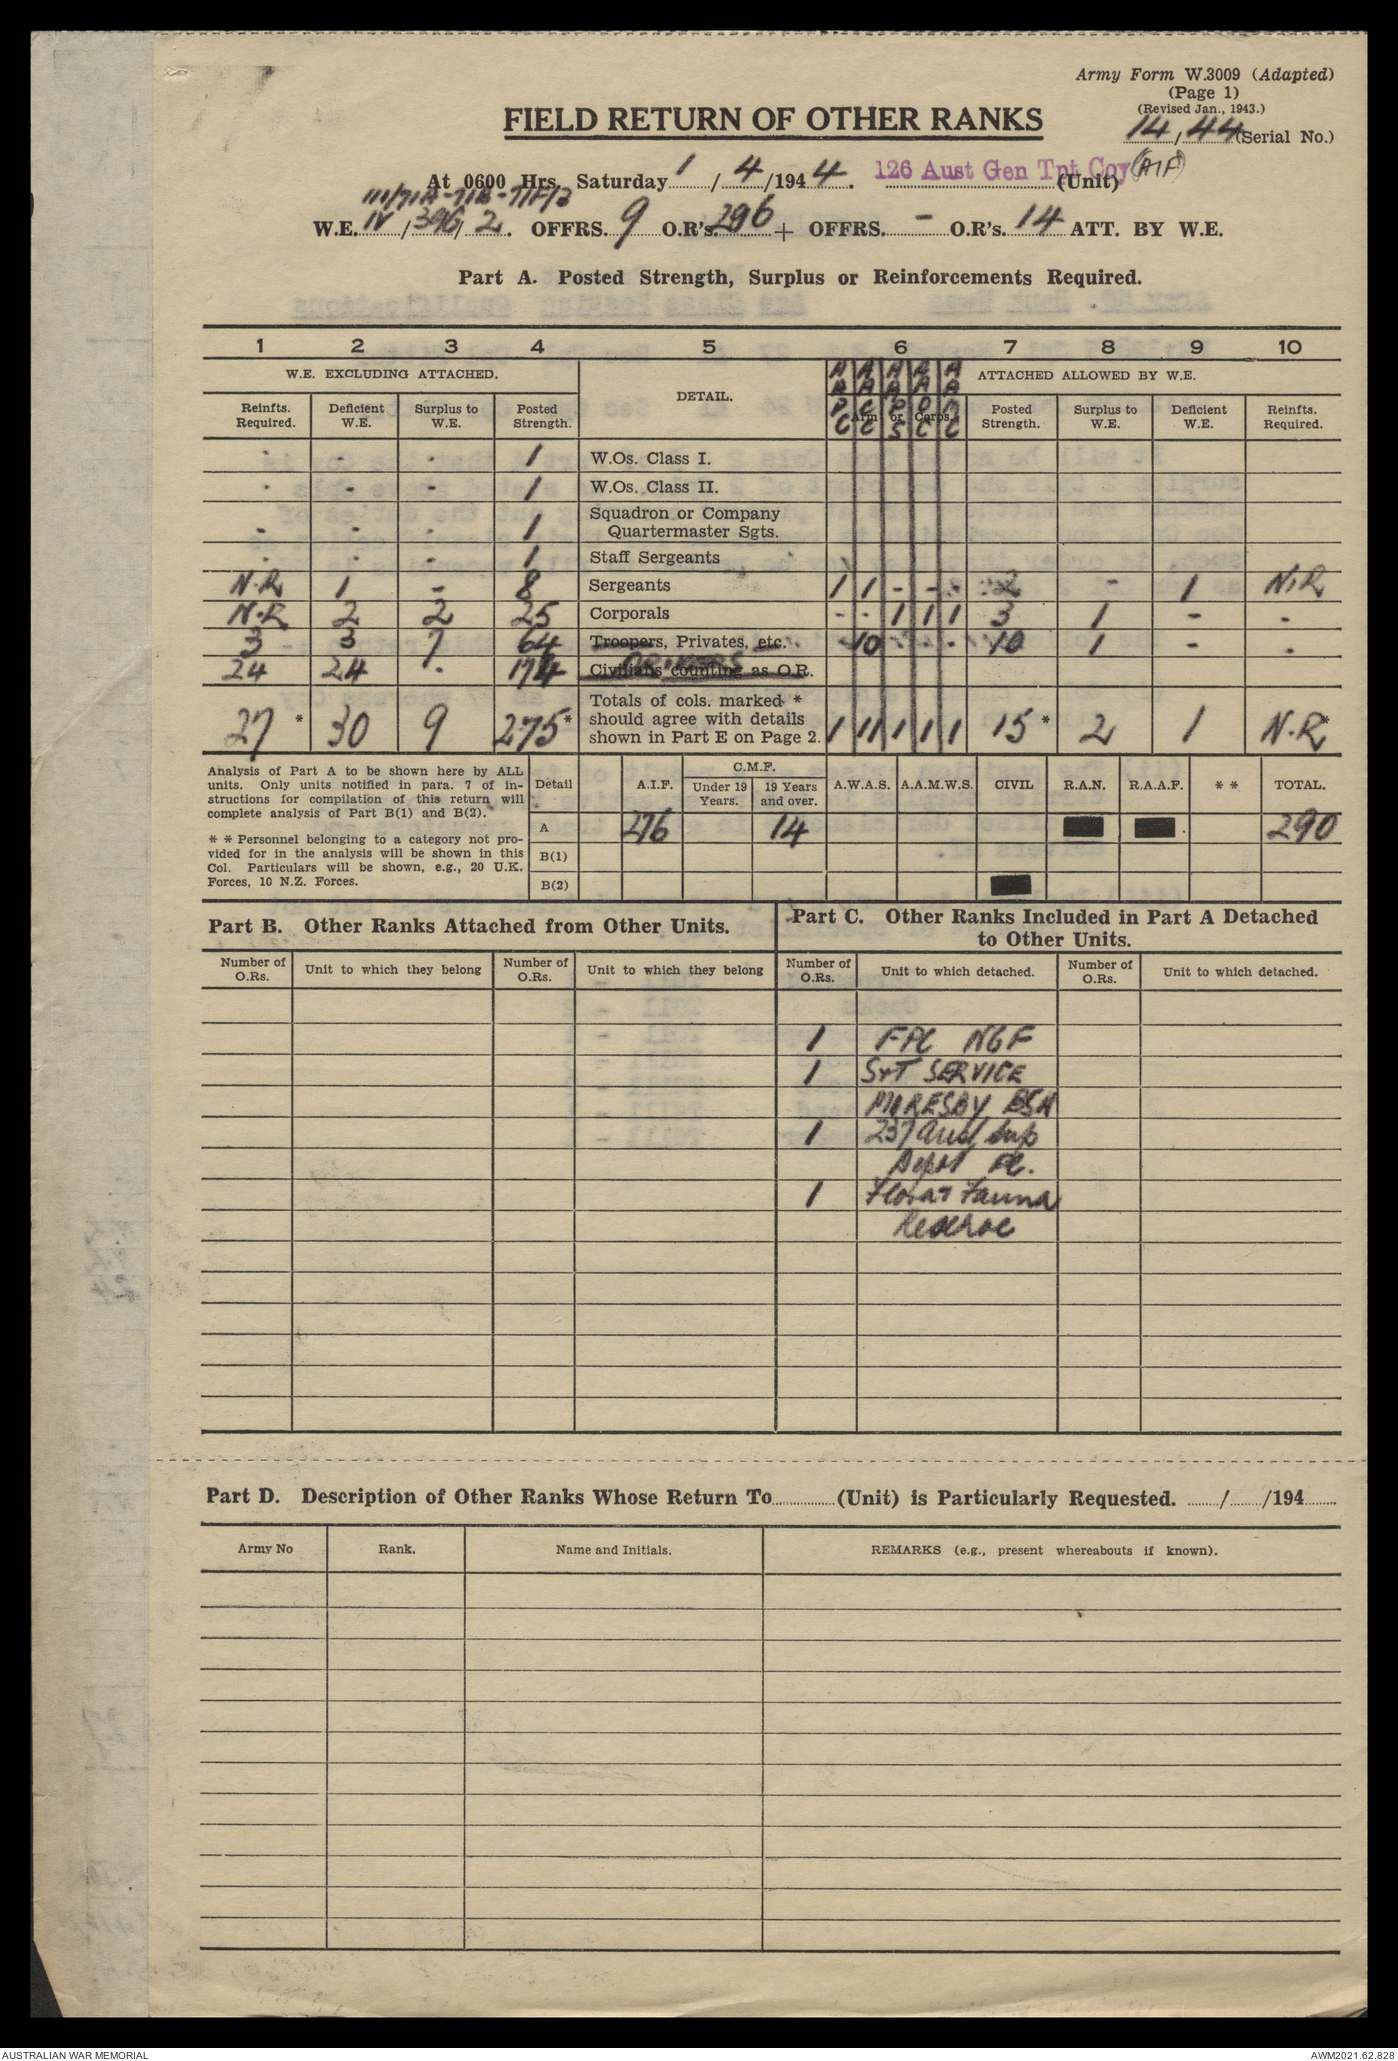 Army Form W.3009 (Adapted)
(Page 1)
(Revised Jan., 1943.)
14/44 (Serial No.)
FIELD RETURN OF OTHER RANKS
At 0600 Hrs. Saturday 1/4/1944. 126 Aust Gen Tpt Coy (AIF) (Unit)
III/71A-71B-71F/2
W.E. IV/396/2. OFFRS. 9 O.R's. 296 + OFFRS. - O.R's. 14 ATT. BY W.E.
Part A. Posted Strength, Surplus or Reinforcements Required.
1 2 3 4 5 6 7 8 9 10
W.E. EXCLUDING ATTACHED. DETAIL. Arm or Corps. ATTACHED ALLOWED BY W.E.
AAPC AACC AAPS AAOC AAMC
Reinfts. Required. Deficient W.E. Surplus to W.E. Posted Strength. Posted Strength. Surplus to W.E. Deficient W.E. Reinfts. Required.
- - - 1 W.Os. Class I.
- - - 1 W.Os. Class II.
- - - 1 Squadron or Company Quartermaster Sgts.
- - - 1 Staff Sergeants
N.R 1 - 8 Sergeants 1 1 - - - 2 - 1 N.R
N.R 2 2 25 Corporals - - 1 1 1 3 1 - -
3 3 7 64 Troopers, Privates, etc. - 10 - - - 10 1 - -
24 24 - 174 Civilians counting as O.R. DRIVERS
27 * 30 9 275 * Totals of cols. marked * should agree with details shown in Part E on Page 2. 1 11 1 1 1 15 * 2 1 N.R *
Analysis of Part A to be shown here by ALL
units. Only units notified in para. 7 of in-
structions for compilation of this return will
complete analysis of Part B(1) and B(2).
* * Personnel belonging to a category not pro-
vided for in the analysis will be shown in this
Col. Particulars will be shown, e.g., 20 U.K.
Forces, 10 N.Z. Forces.
Detail A.I.F. C.M.F. Under 19 Years. 19 Years and over. A.W.A.S. A.A.M.W.S. CIVIL R.A.N. R.A.A.F. * * TOTAL.
A 276 14 290
B(1)
B(2)
Part B. Other Ranks Attached from Other Units.
Part C. Other Ranks Included in Part A Detached
to Other Units.
Number of O.Rs. Unit to which they belong Number of O.Rs. Unit to which they belong Number of O.Rs. Unit to which detached. Number of O.Rs. Unit to which detached.
1 FPC NGF
1 S&T SERVICE
MORESBY BSA
1 237 Aust Sup
Depot Pl.
1 Flora & Fauna
Part D. Description of Other Ranks Whose Return To (Unit) is Particularly Requested. / /194
Army No Rank. Name and Initials. REMARKS (e.g., present whereabouts if known).
AUSTRALIAN WAR MEMORIAL
AWM2021.62.828